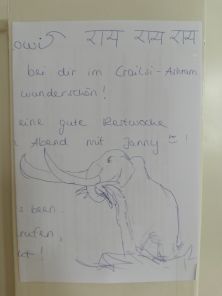 राय राय राय
bei dir im Craisi-Ashram
wunderschön!
eine gute Restwoche
Abend mit Janny !
been
rufen,